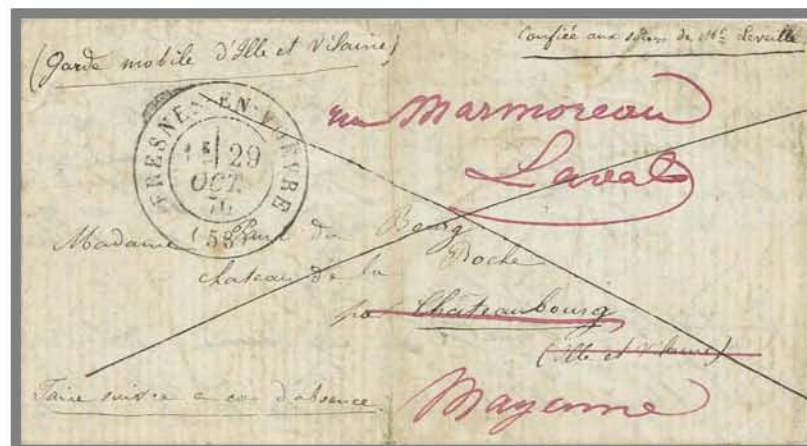 (Garde mobile d'Ille et Vilaine)
Confiée aux soins de Mr Leveillé
FRESNES-EN-WOËVRE
1E 29
OCT.
70
(53)
rue Marmoreau
Laval
Madame Paul du Bourg
chateau de la Roche
par Châteaubourg
(Ille et Vilaine)
Mayenne
Faire suivre en cas d'absence.